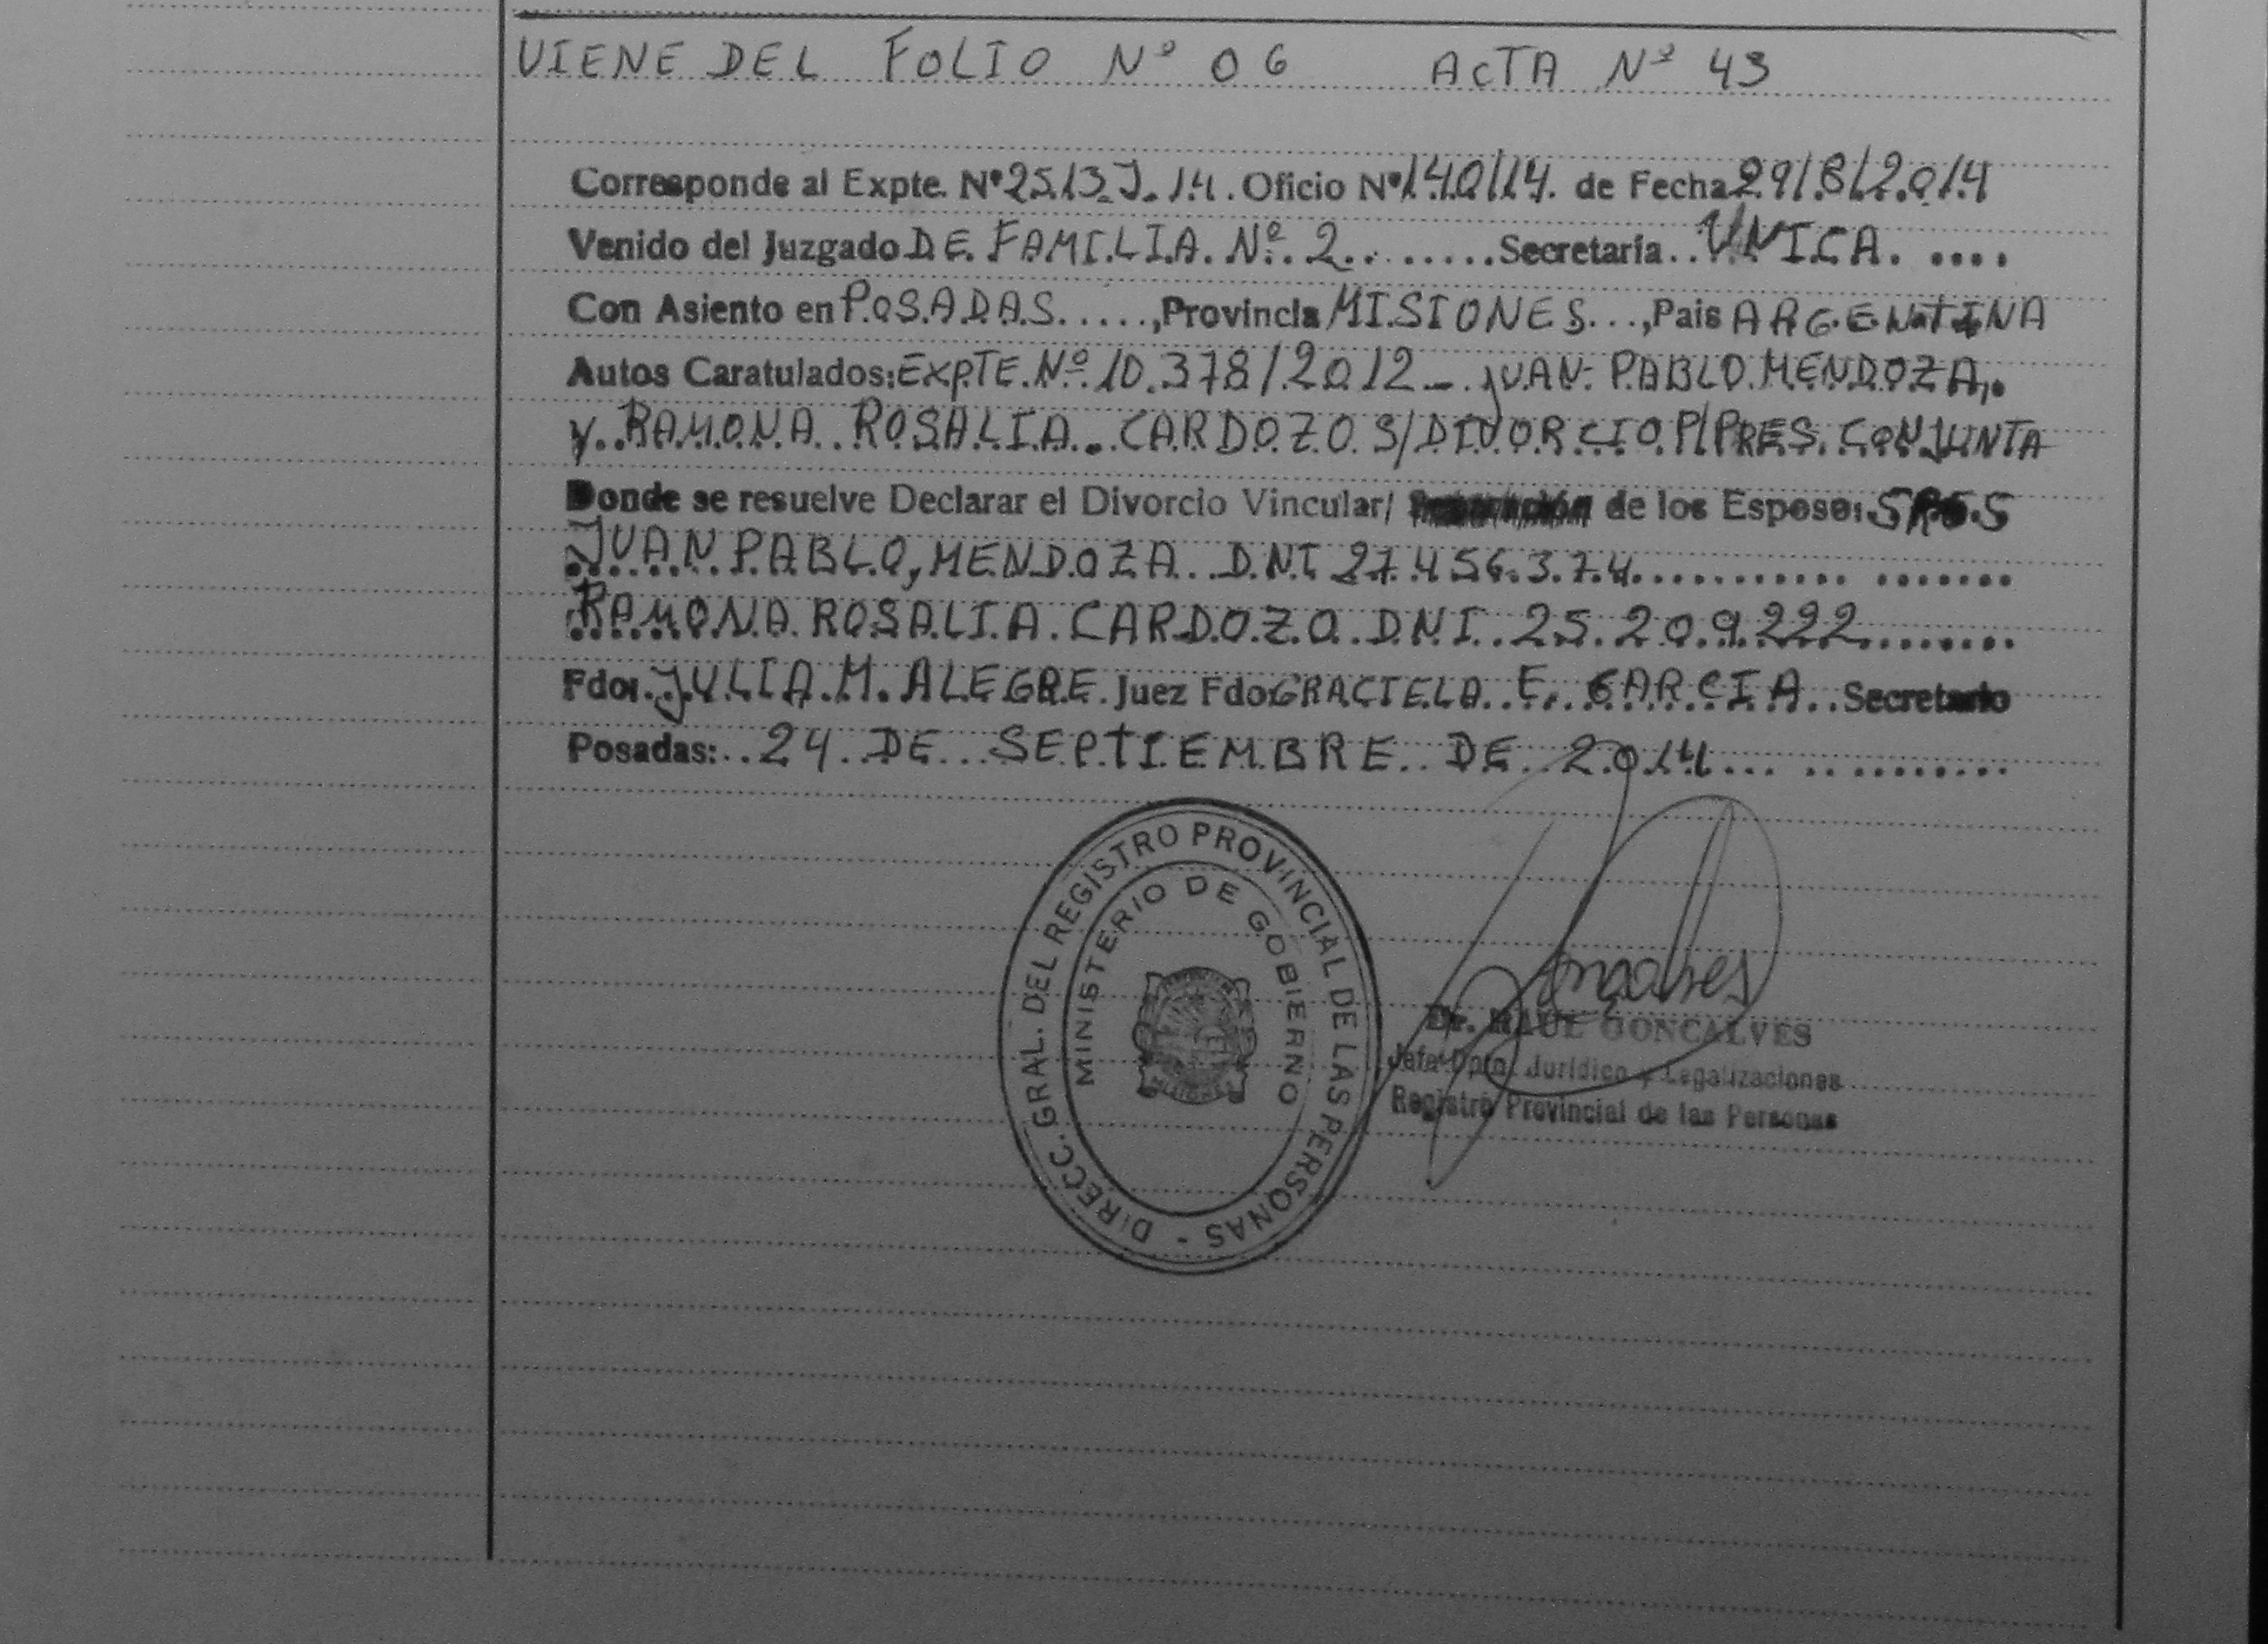 VIENE DEL FOLIO Nº 06 ACTA Nº 43
Corresponde al Expte. Nº 2513.J.14. Oficio Nº 140/14. de Fecha 29/8/2014
Venido del Juzgado DE FAMILIA Nº 2 Secretaría UNICA
Con Asiento en POSADAS, Provincia MISIONES, Pais ARGENTINA
Autos Caratulados: EXPTE Nº 10.378/2012 - JUAN PABLO MENDOZA,
y RAMONA ROSALIA CARDOZO S/DIVORCIO P/PRES. CONJUNTA
Donde se resuelve Declarar el Divorcio Vincular/ de los Esposo: SRES
JUAN PABLO, MENDOZA DNI 27.456.374
RAMONA ROSALIA CARDOZO DNI 25.209.222
Fdo: JULIA M. ALEGRE Juez Fdo: GRACIELA E. GARCIA Secretario
Posadas: 24 DE SEPTIEMBRE DE 2014
DIRECC. GRAL. DEL REGISTRO PROVINCIAL DE LAS PERSONAS -
MINISTERIO DE GOBIERNO
MISIONES
Dr. RAUL GONCALVES
Jefe Dpto. Jurídico y Legalizaciones
Registro Provincial de las Personas